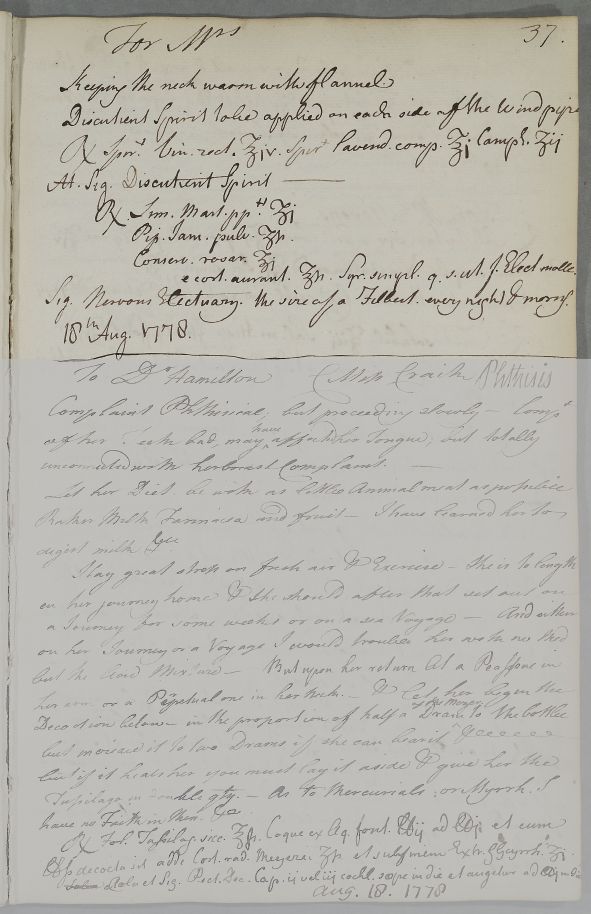 For Mrs 37.
Keeping the neck warm with flannel
Discutient Spirit to be applied on each side of the Wind pipe
℞ Spr.t Vin. rect. ℥iv. Spir.t Lavend. comp. ℥j Camph. ʒij
M. Sig. Discutient Spirit
℞. Lim. Mart. pp.tt ℥j
Pip. Jam. pulv. ℥ß.
Conserv. rosar. ℥j
e cort. aurant. ℥ß. Syr. simpl. q. s. ut. f. Elect molle.
Sig. Nervous Electuary. the size of a Filbert. every night & morng.
18th Aug. 1778.
To Dr Hamilton (Miss Craik Phthisis
Complaint Phthisical, but proceeding slowly — Compt
of her Teeth bad, may have affected her Tongue, but totally
unconnected with her breast Complaint.
Let her Diet be with as little Animal meat as possible
Rather Milk Farinacea and fruit — I have learned her to
digest milk &c
I lay great stress on fresh air & Exercise — She is to length
en her journey home & She should after that set out on
a Journey for some weeks or on a sea Voyage — And when
on her Journey or a Voyage I would trouble her with no Med
but the Acid Mixture — But upon her return Let a Pea Issue in
her arm or a Perpetual one in her Neck. — & Let her begin the
Decoction below — in the proportion of half a Dram of the Mezer. to the bottle
but increase it to two Drams if she can bear it
but if it heats her you must lay it aside & give her the
Tussilago in double qty. — As to Mercurials, or Myrrh. I
have no Faith in them. &c.
℞ Fol. Tussilag. sicc. ℥ß. Coque ex Aq. font. ad et cum
decocta sit adde Cort. rad. Mezere. ʒß et sub finem Extr. Glycyrrh. ʒj
Cola et Sig. Pect. Dec. Cap. ij vel iij cochl. sæpe in die et augetur ad in die
Aug. 18. 1778